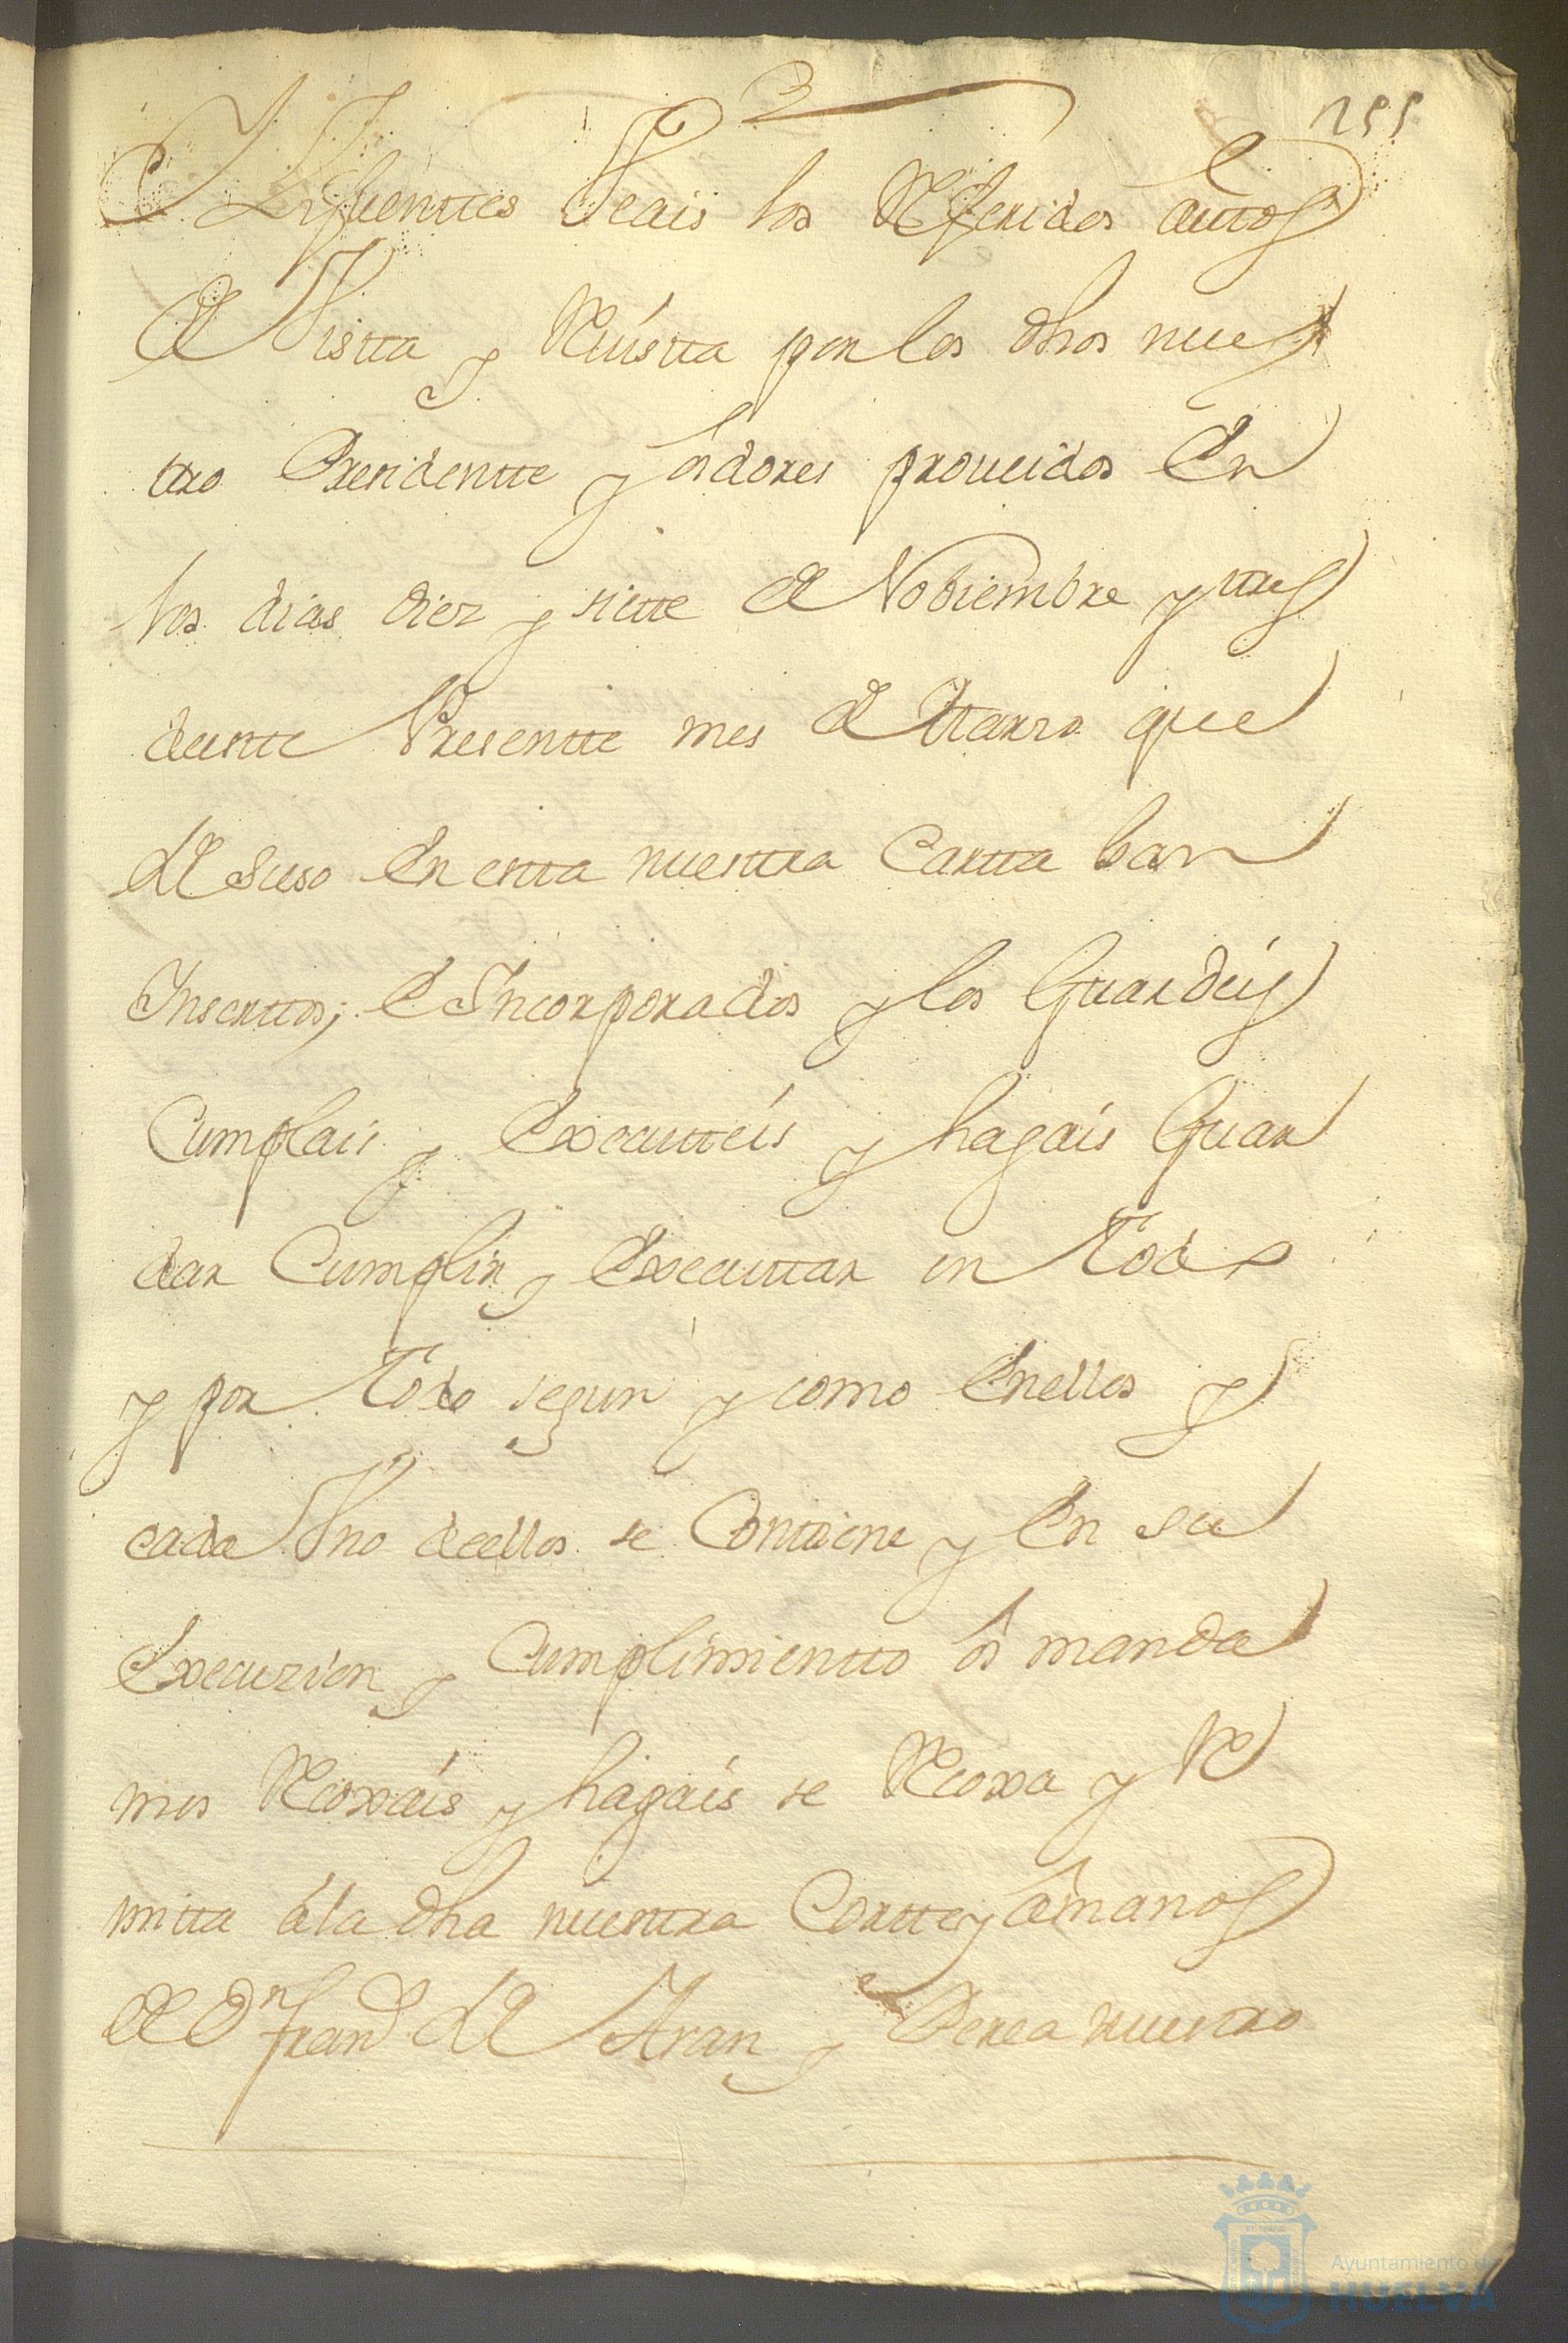 255
Siguienttes Veais los Referidos auttos
de Vistta y Revistta por los dhos nues
ttro Presidentte y oidores proueidos En
los dias diez y siette de Nobiembre y ttres
deestte Presentte mes de Marzo que
de Suso En estta nuesttra Cartta ban
Inserttos; E Incorporados y los Guardeis
Cumplais y Executteis y hagais Guar
dar Cumplir y Executtar en Todo
y por Todo segun y como Enellos y
cada Vno deellos se Conttiene y En su
Execuzion y Cumplimientto os manda
mos Recoxais y hagais se Recoxa y Re
mitta á la dha nuesttra Cortte y á manos
de Dn Franco de Aran y Perea nuesttro
Ayuntamiento de
HUELVA